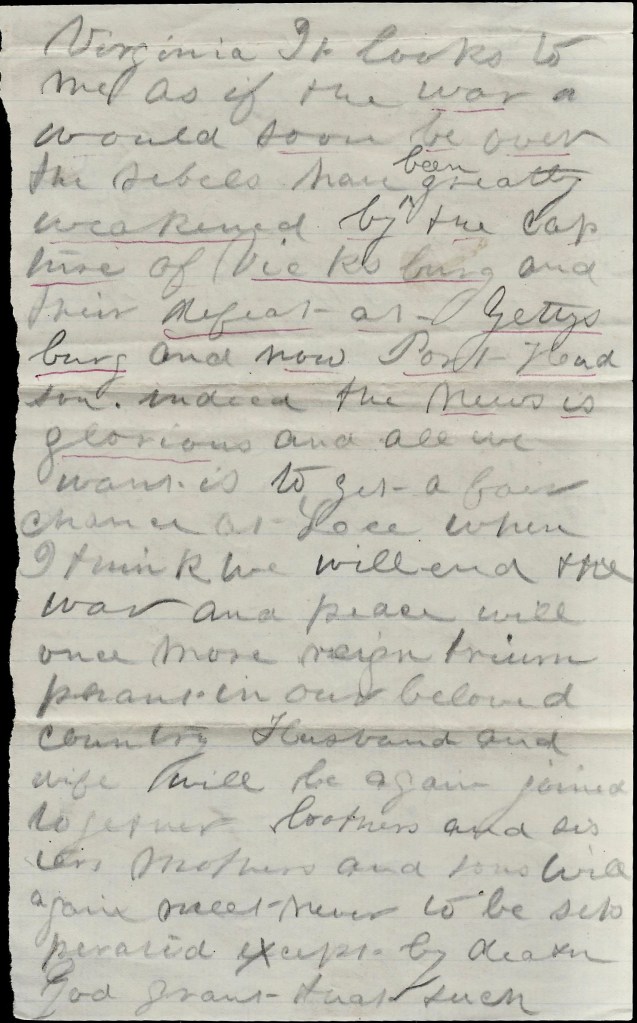 Virginia It looks to
me as if the war a
would soon be over
the rebels have been greatly
weakened by the cap
ture of Vicksburg and
their defeat at Gettys
burg and now Port Hud
son. indeed the news is
glorious and all we
want is to get a fair
chance at Lee when
I think we will end the
war and peace will
once more reign trium
phant in our beloved
country Husband and
wife will be again joined
together brothers and sis
ters Mothers and sons will
again meet never to be sep
perated except by death
God grant that such